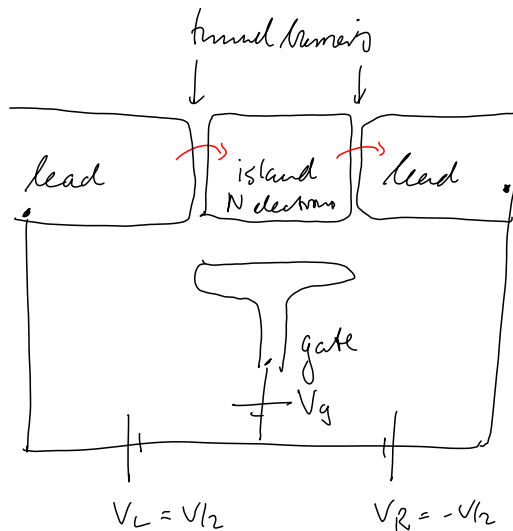 tunnel barriers
lead
island
N electrons
lead
gate
Vg
V_L = V/2
V_R = -V/2